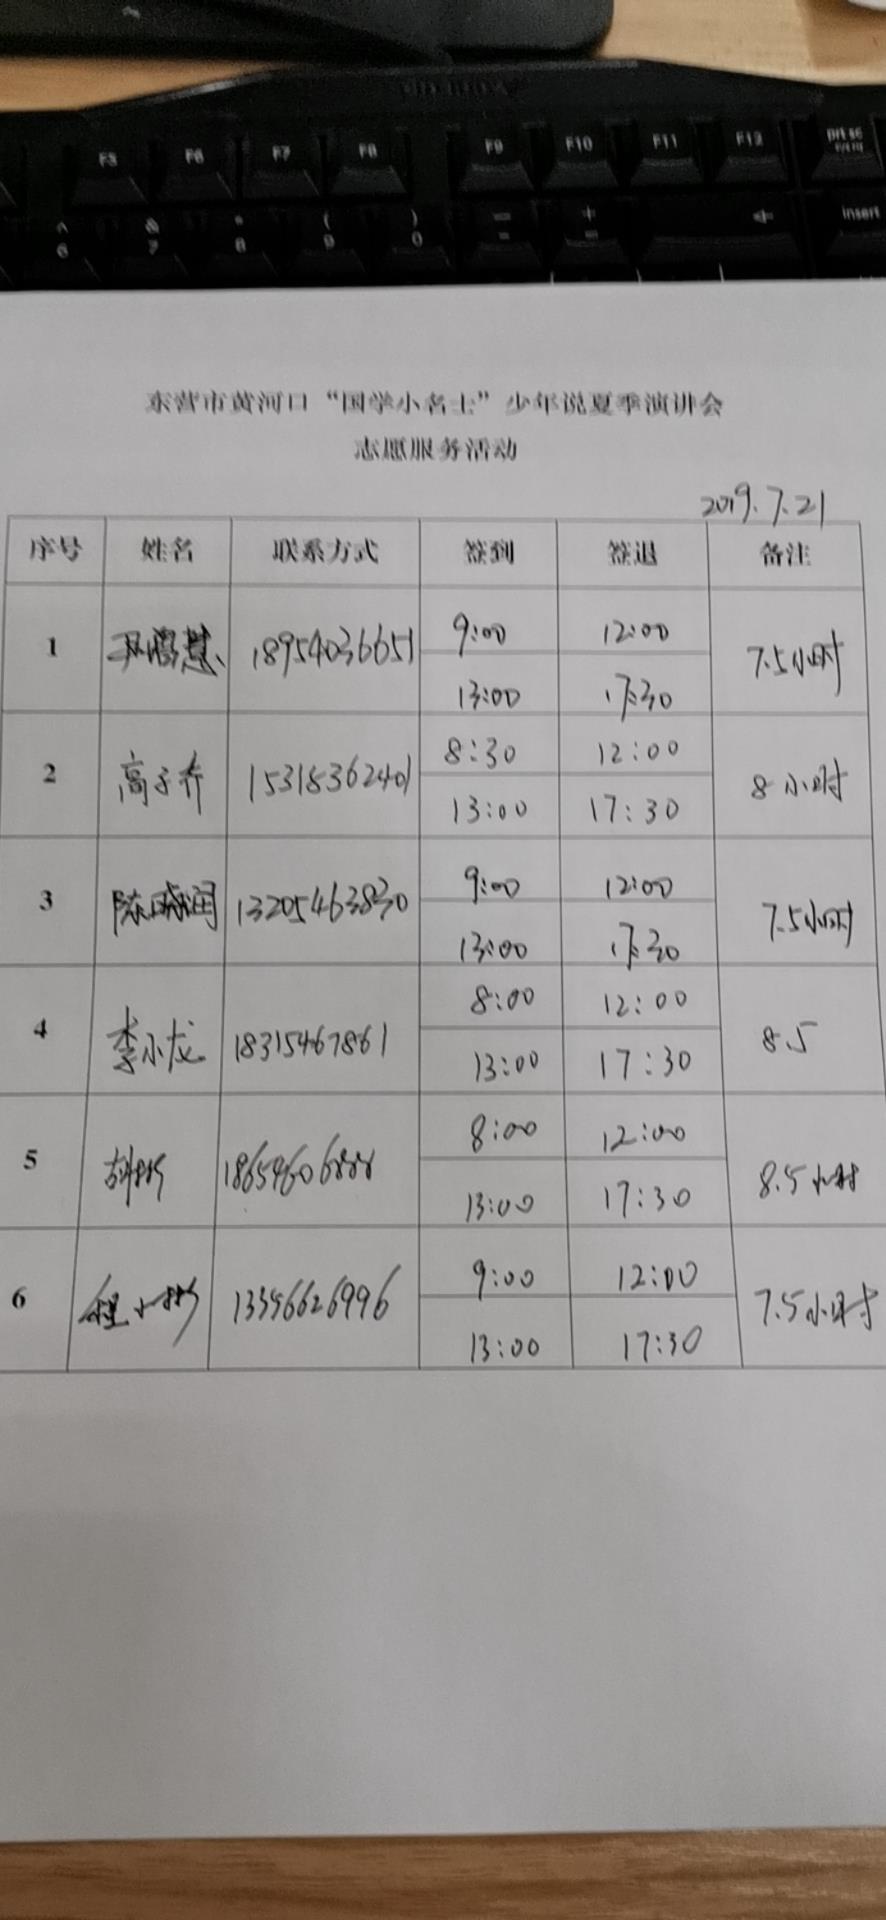 F5 F6 F7 F8 F9 F10 F11 F12 prt sc
^ & * ( ) — + insert
6 7 8 9 0 - =
东营市黄河口“国学小名士”少年说夏季演讲会
志愿服务活动
2019.7.21
序号 姓名 联系方式 签到 签退 备注
1 18954036651 9:00 12:00 7.5小时
13:00 17:30
2 高子乔 15318362401 8:30 12:00 8小时
13:00 17:30
3 陈晓润 13205463830 9:00 12:00 7.5小时
13:00 17:30
4 李小龙 18315467861 8:00 12:00 8.5
13:00 17:30
5 8:00 12:00 8.5小时
13:00 17:30
6 9:00 12:00 7.5小时
13:00 17:30